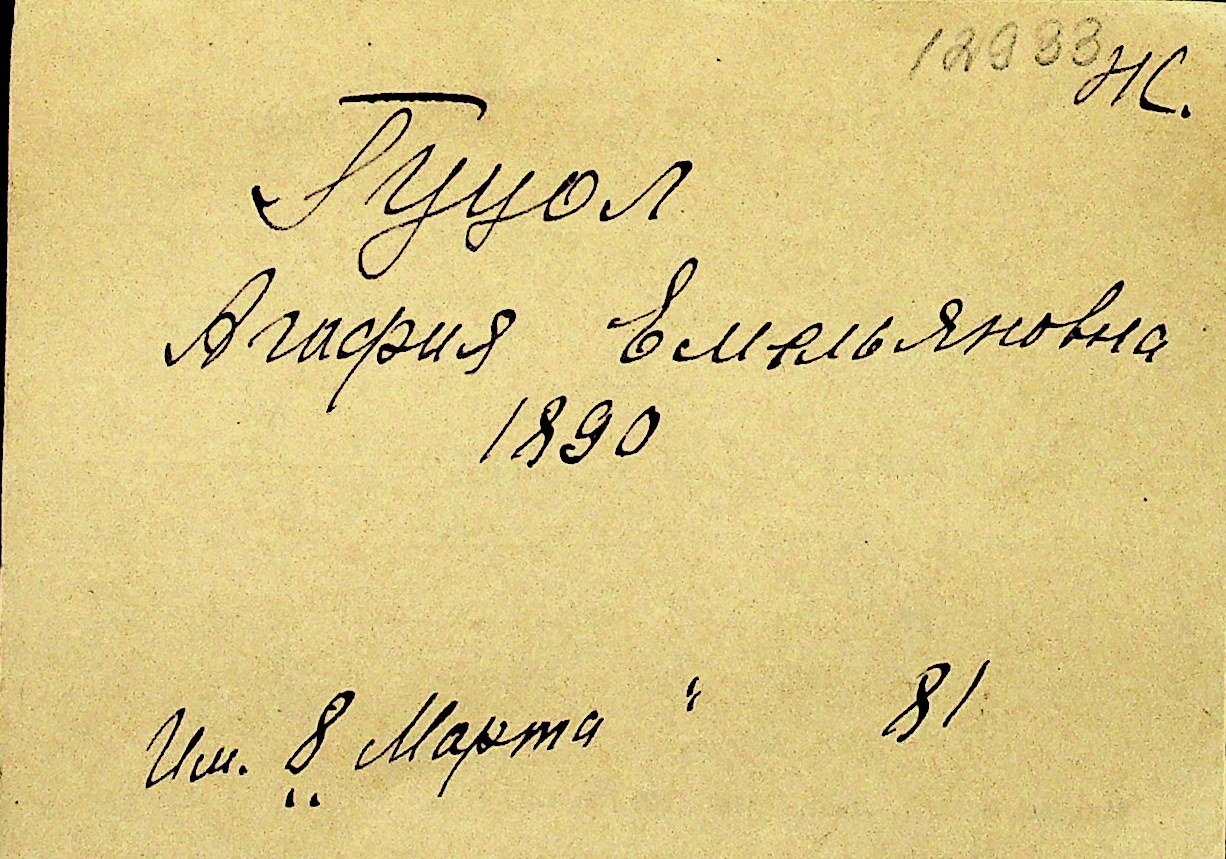 12983 Ж.
Гуцол
Агафия Емельяновна
1890
Им. „8 Марта“ 81